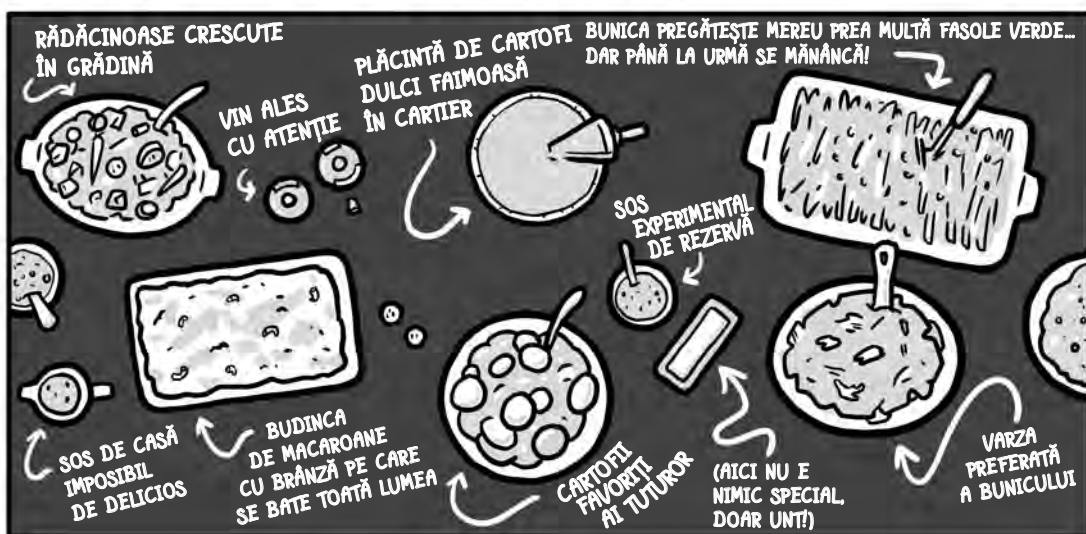 RĂDĂCINOASE CRESCUTE
ÎN GRĂDINĂ
VIN ALES
CU ATENȚIE
PLĂCINTĂ DE CARTOFI
DULCI FAIMOASĂ
ÎN CARTIER
BUNICA PREGĂTEȘTE MEREU PREA MULTĂ FASOLE VERDE...
DAR PÂNĂ LA URMĂ SE MĂNÂNCĂ!
SOS
EXPERIMENTAL
DE REZERVĂ
SOS DE CASĂ
IMPOSIBIL
DE DELICIOS
BUDINCA
DE MACAROANE
CU BRÂNZĂ PE CARE
SE BATE TOATĂ LUMEA
CARTOFII
FAVORIȚI
AI TUTUROR
(AICI NU E
NIMIC SPECIAL,
DOAR UNT!)
VARZA
PREFERATĂ
A BUNICULUI